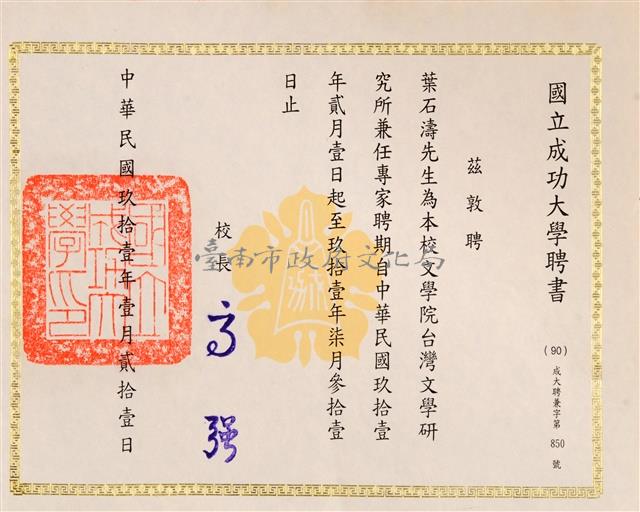 國立成功大學聘書
(90)成大聘兼字第 850 號
茲敦聘
葉石濤先生為本校文學院台灣文學研
究所兼任專家聘期自中華民國玖拾壹
年貳月壹日起至玖拾壹年柒月參拾壹
日止
校長 高強
中華民國玖拾壹年壹月貳拾壹日
國立成功大學印
臺南市政府文化局